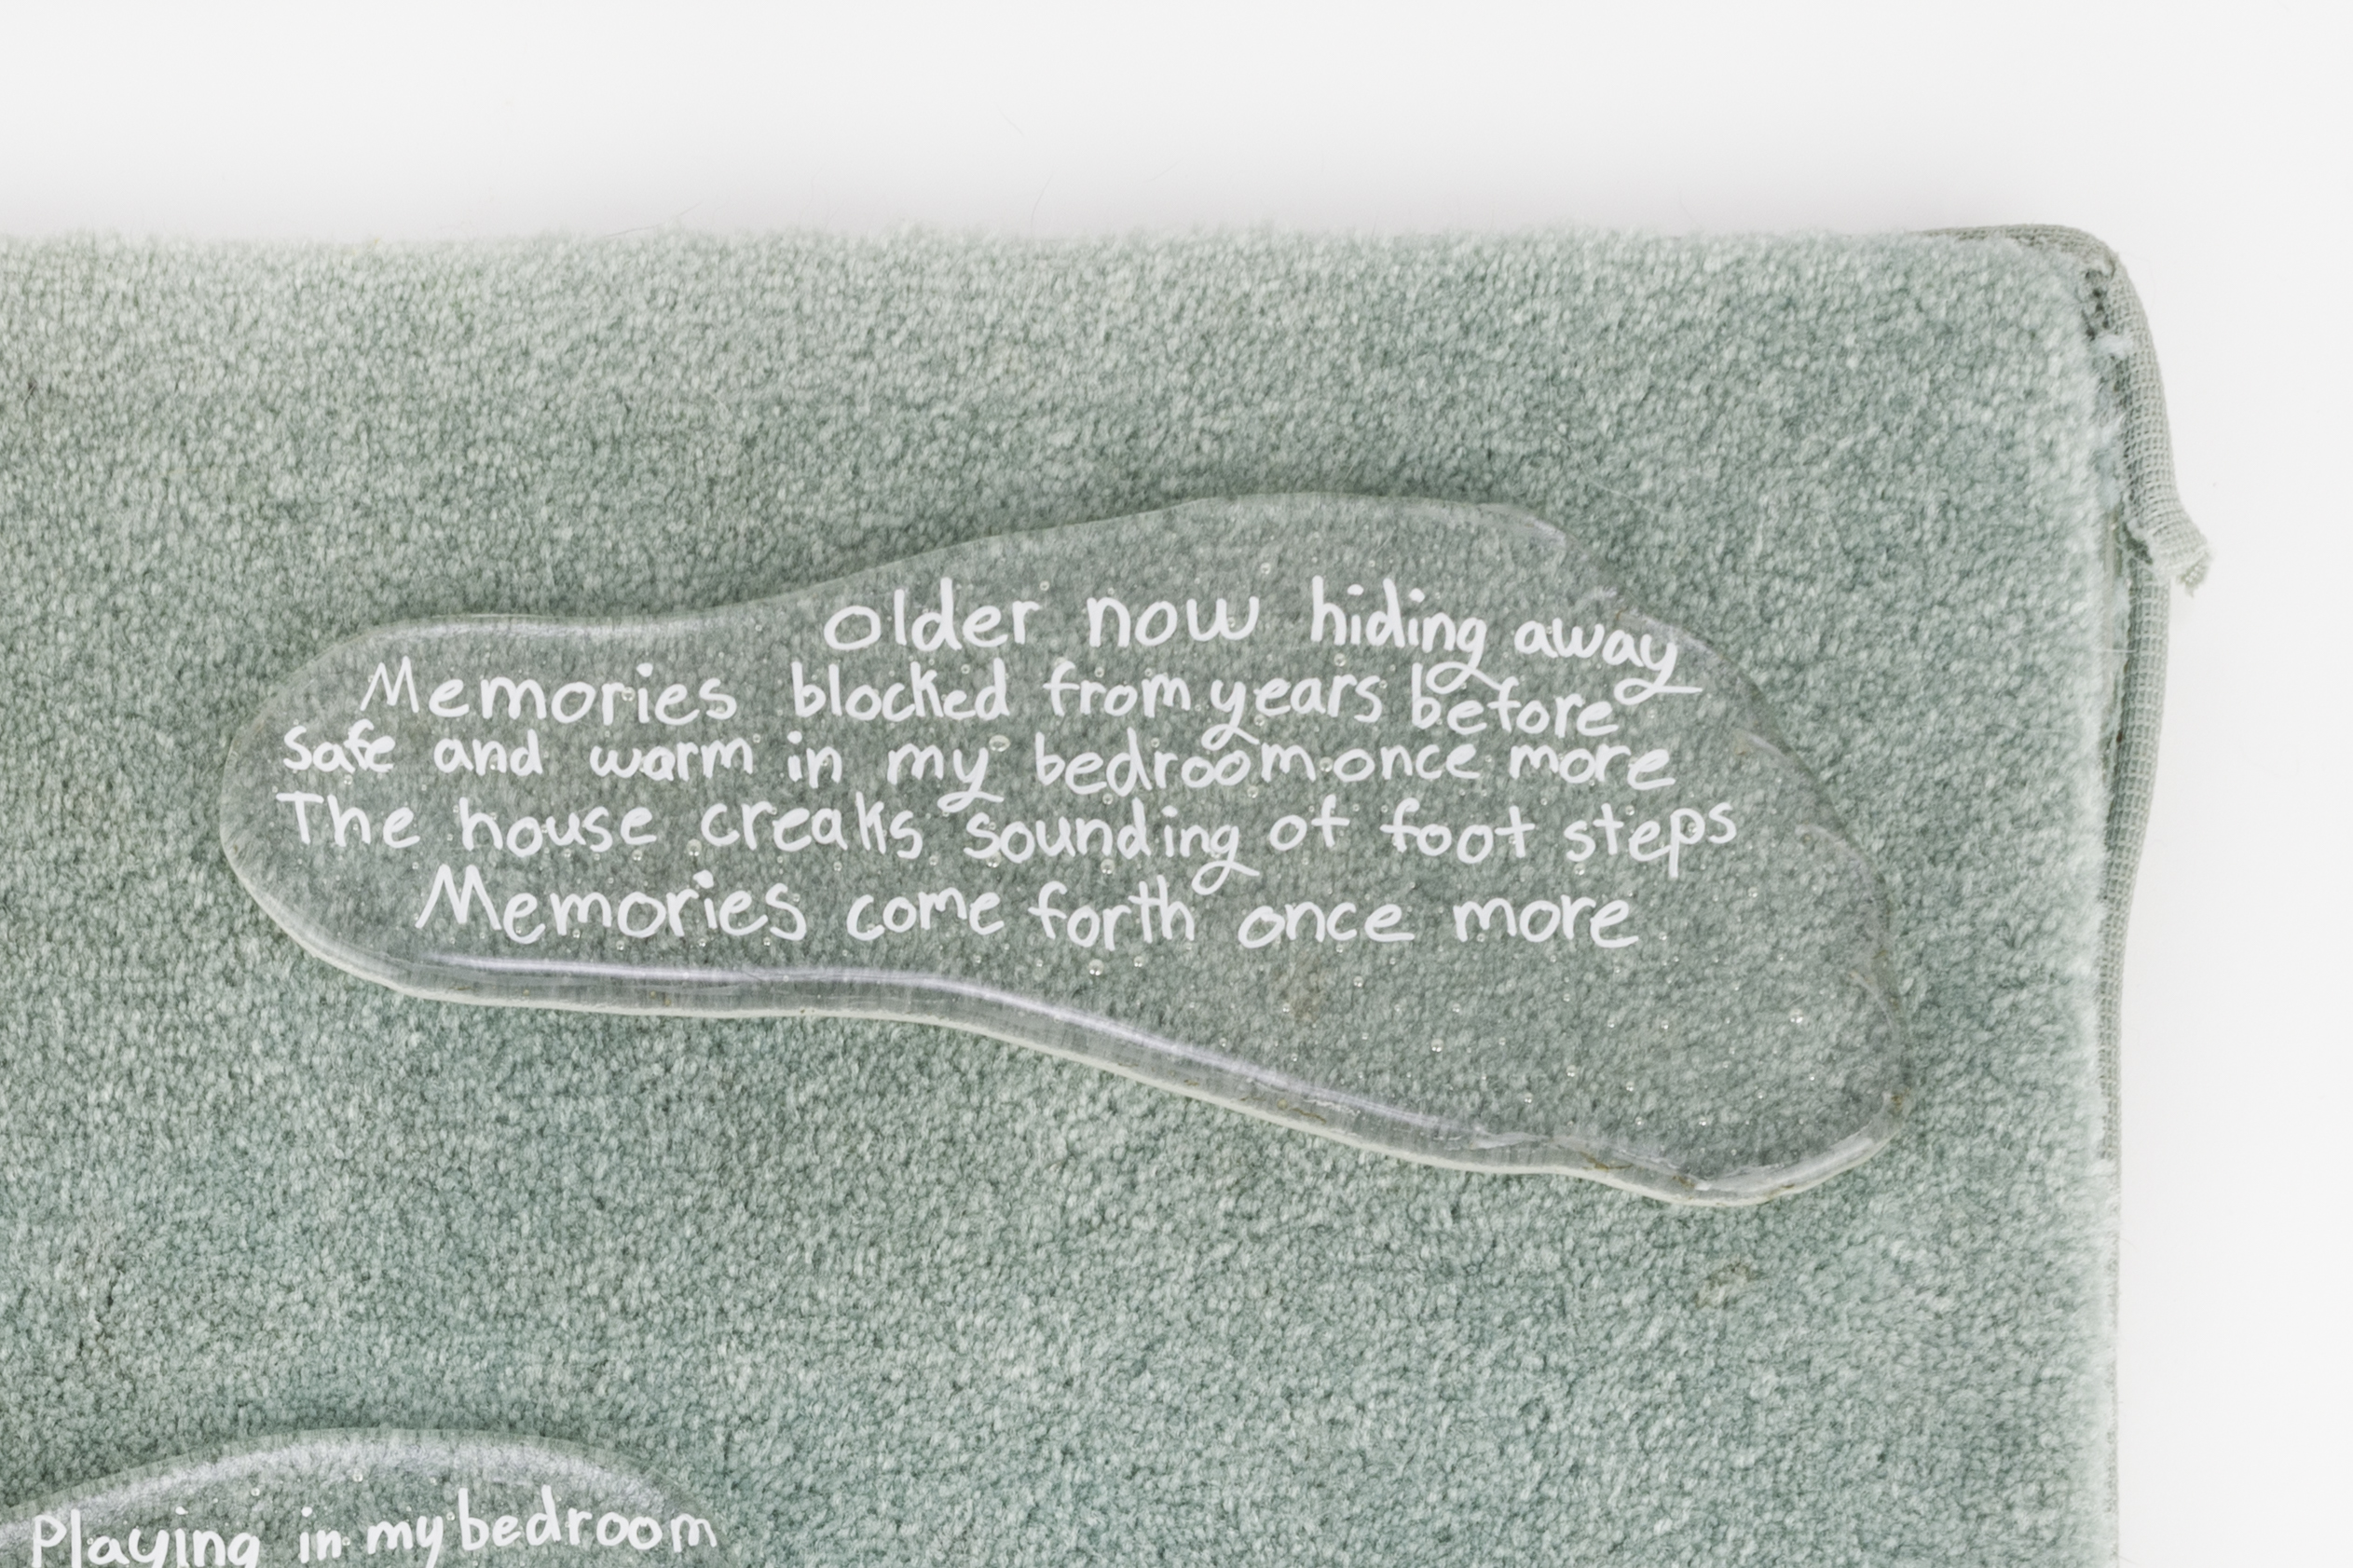 Older now hiding away
Memories blocked from years before
Safe and warm in my bedroom once more
The house creaks sounding of foot steps
Memories come forth once more
Playing in my bedroom